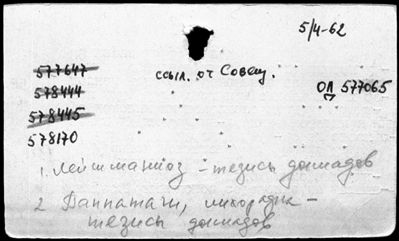 5/4-62
577647 ссыл. от Совещ.
578444 ОП 577065
578445
578170
1. Лейшманиоз - тезисы докладов
2 Паппатачи, лихорадка -
тезисы докладов